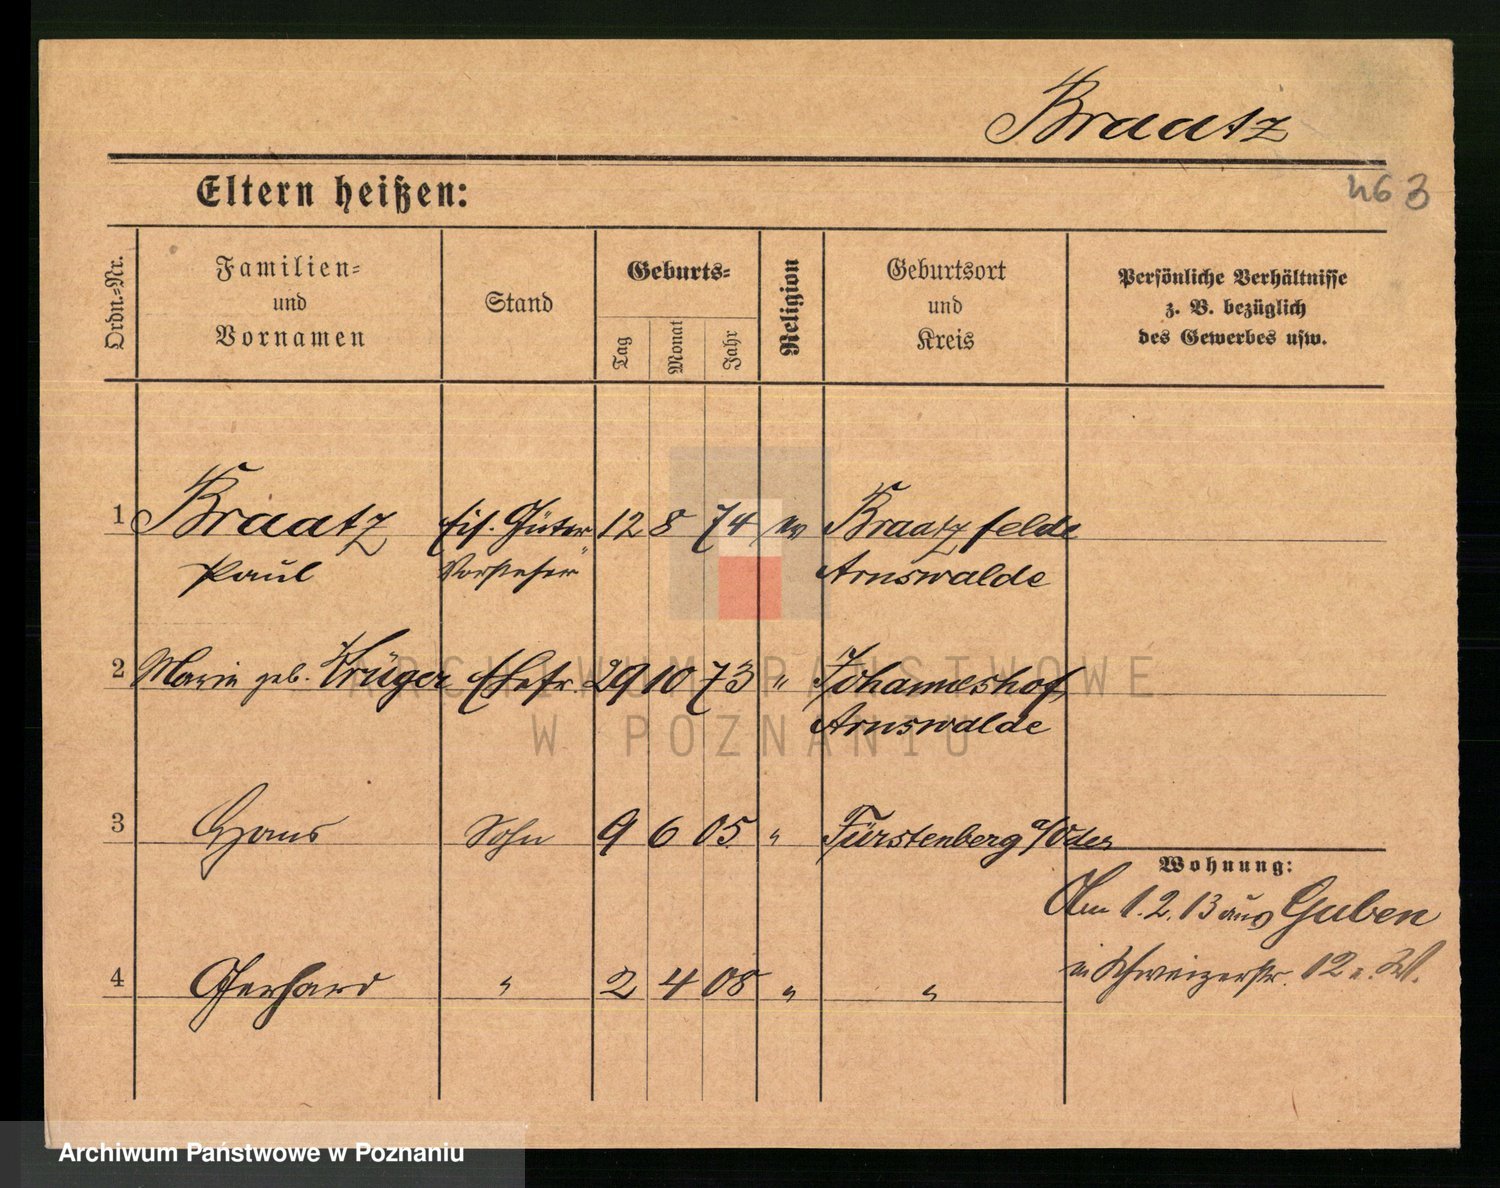 Braatz
463
Eltern heißen:
Ordn.-Nr.
Familien-
und
Vornamen
Stand
Geburts-
Tag
Monat
Jahr
Religion
Geburtsort
und
Kreis
Persönliche Verhältnisse
z. B. bezüglich
des Gewerbes usw.
1 Braatz Eis. Güter 12 8 74 ev Braatzfelde
Paul Vorsteher Arnswalde
2 Marie geb. Krüger Ehefr. 29 10 73 " Johanneshof,
Arnswalde
3 Hans Sohn 9 6 05 " Fürstenberg a/Oder
Wohnung:
Am 1. 2. 13 aus Guben
4 Gerhard " 2 4 08 " "
in Schweizerstr. 12
ARCHIWUM PAŃSTWOWE
W POZNANIU
Archiwum Państwowe w Poznaniu